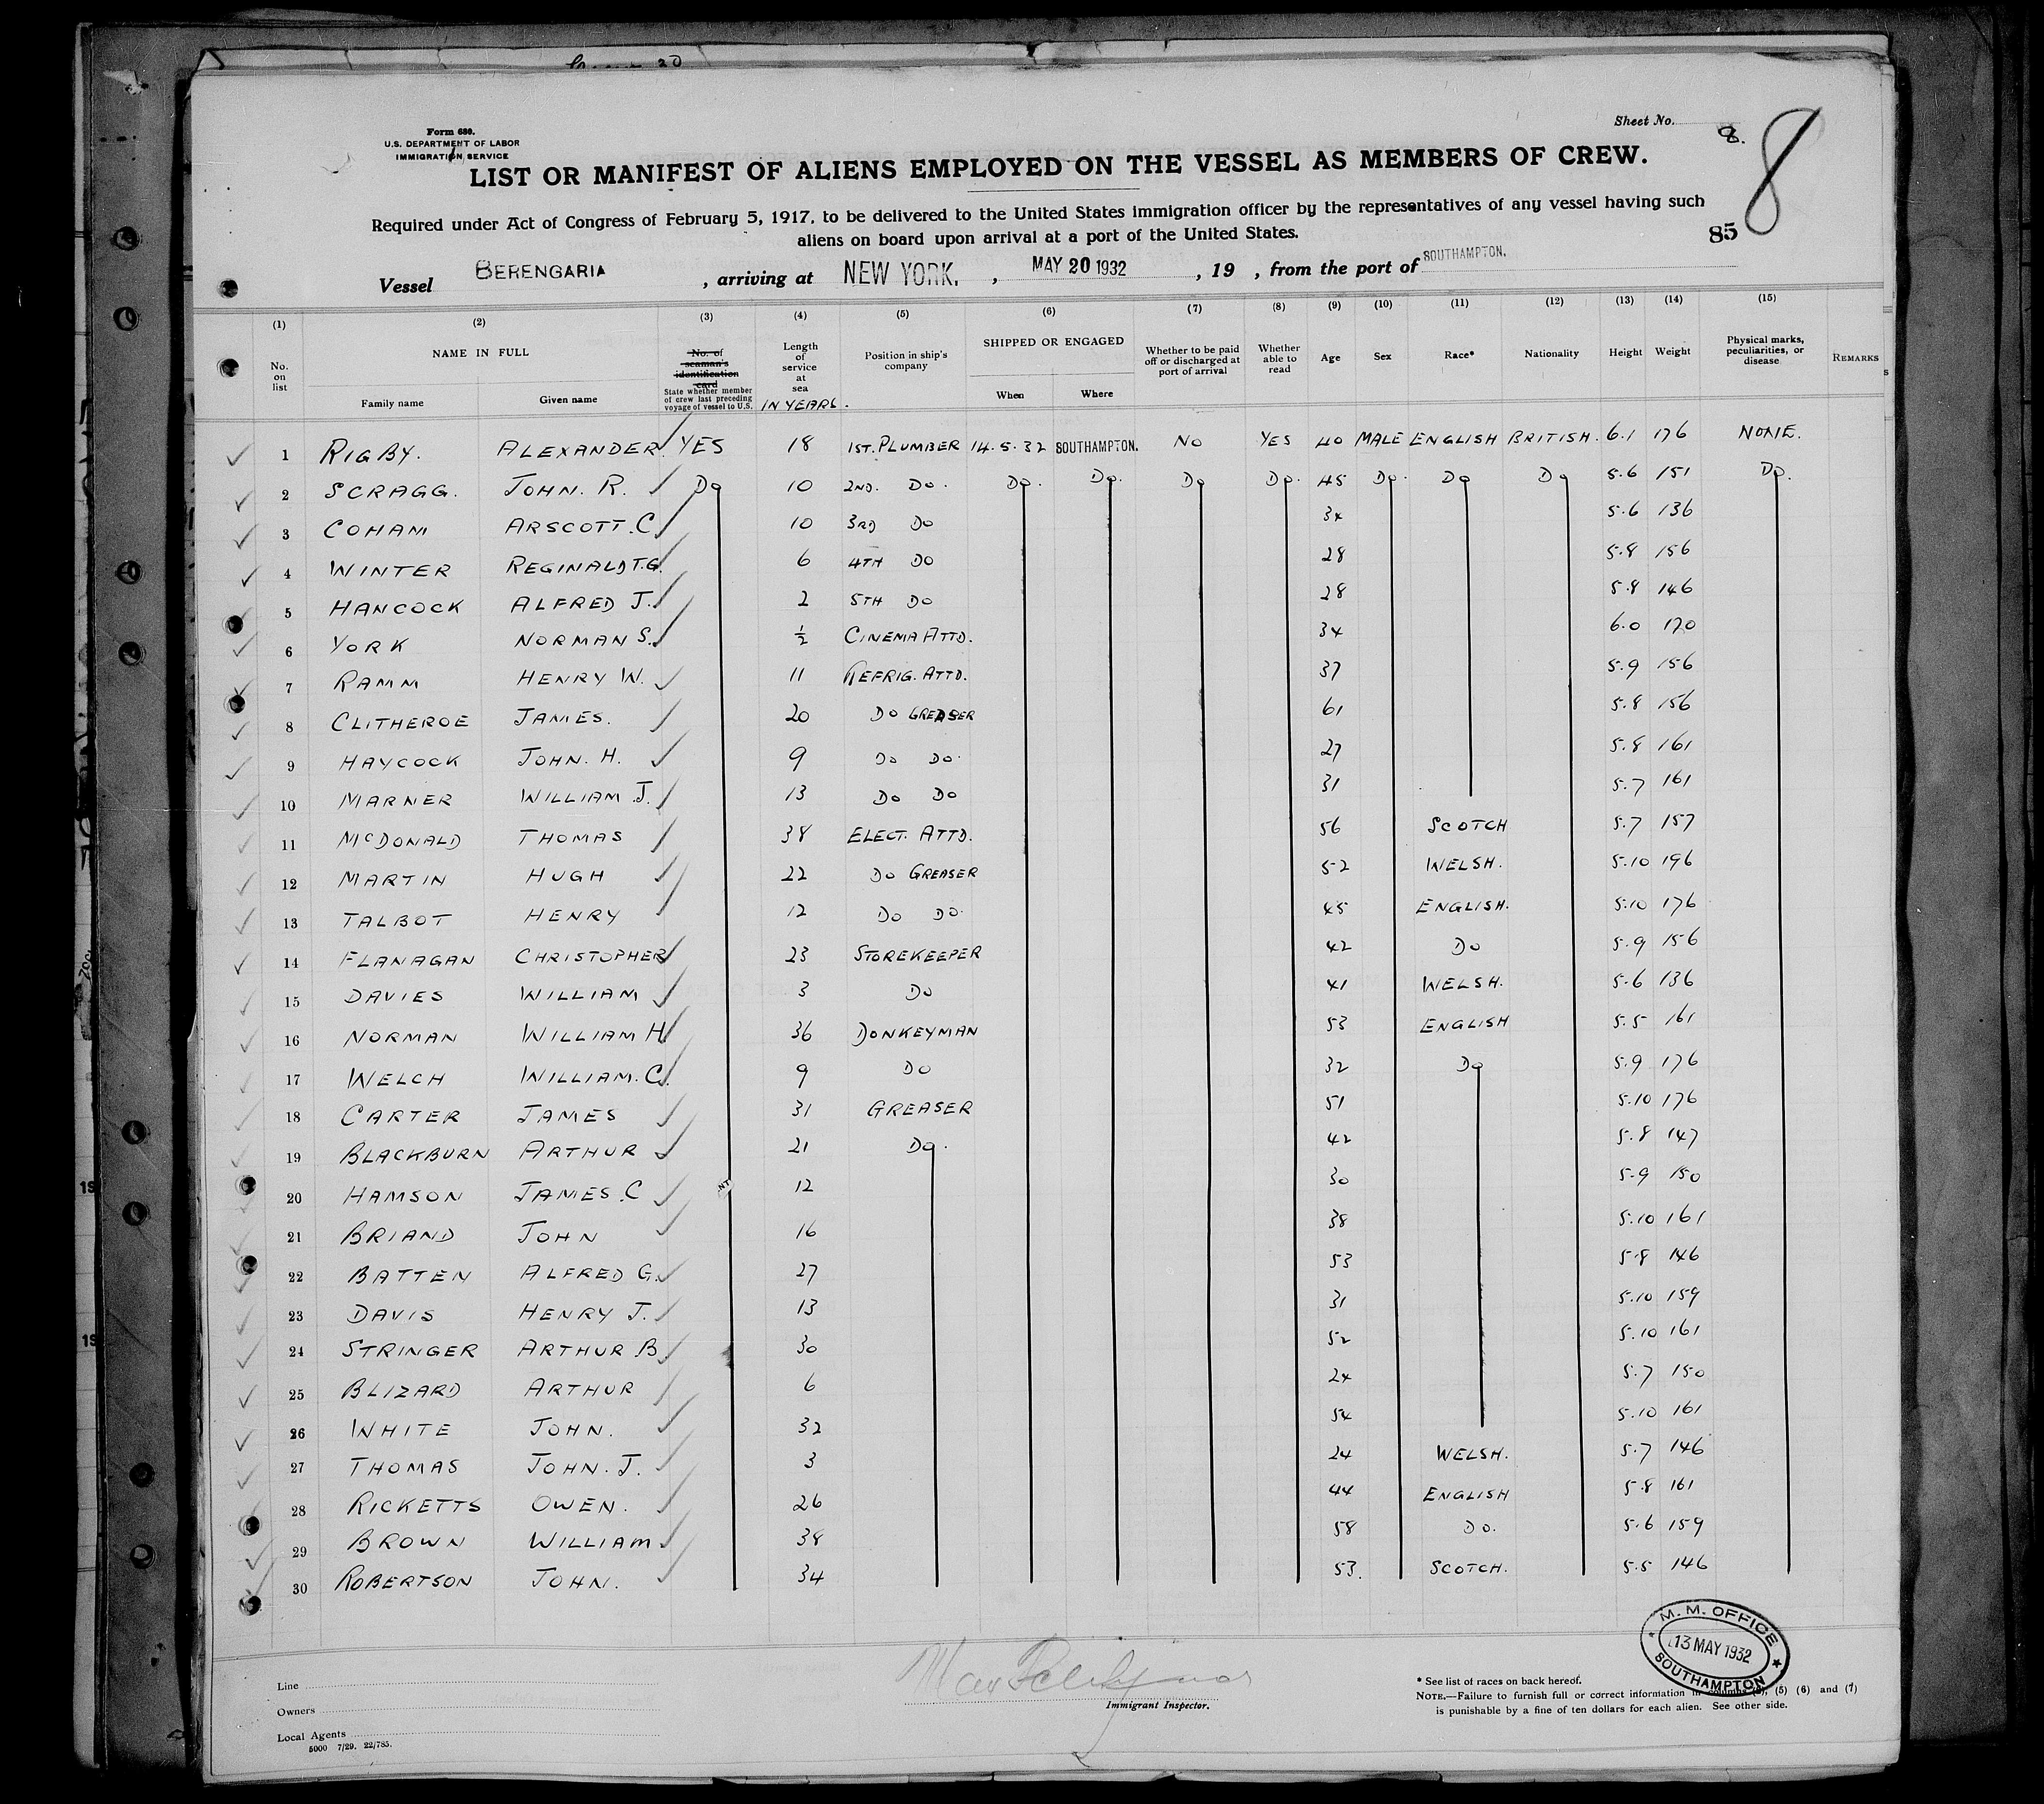 Form 680.
U.S. DEPARTMENT OF LABOR
IMMIGRATION SERVICE
Sheet No. 8.
8
LIST OR MANIFEST OF ALIENS EMPLOYED ON THE VESSEL AS MEMBERS OF CREW.
Required under Act of Congress of February 5, 1917, to be delivered to the United States immigration officer by the representatives of any vessel having such
aliens on board upon arrival at a port of the United States.
85
Vessel BERENGARIA, arriving at NEW YORK., MAY 20 1932, 19 , from the port of SOUTHAMPTON.
(1) (2) (3) (4) (5) (6) (7) (8) (9) (10) (11) (12) (13) (14) (15)
No. on list NAME IN FULL Family name Given name No. of seaman's identification card State whether member of crew last preceding voyage of vessel to U.S. Length of service at sea IN YEARS. Position in ship's company SHIPPED OR ENGAGED When Where Whether to be paid off or discharged at port of arrival Whether able to read Age Sex Race* Nationality Height Weight Physical marks, peculiarities, or disease REMARKS
1 RIGBY. ALEXANDER YES 18 1ST. PLUMBER 14.5.32 SOUTHAMPTON. NO YES 40 MALE ENGLISH BRITISH. 6.1 176 NONE.
2 SCRAGG. JOHN. R. Do 10 2ND. Do. Do. Do. Do Do. 45 Do. Do Do 5.6 151 Do.
3 COHAM ARSCOTT. C. 10 3RD Do 34 5.6 136
4 WINTER REGINALD T.G. 6 4TH Do 28 5.8 156
5 HANCOCK ALFRED J. 2 5TH Do 28 5.8 146
6 YORK NORMAN S. ½ CINEMA ATTD. 34 6.0 170
7 RAMM HENRY W. 11 REFRIG. ATTD. 37 5.9 156
8 CLITHEROE JAMES. 20 Do GREASER 61 5.8 156
9 HAYCOCK JOHN. H. 9 Do Do. 27 5.8 161
10 MARNER WILLIAM J. 13 Do Do 31 5.7 161
11 McDONALD THOMAS 38 ELECT. ATTD. 56 SCOTCH 5.7 157
12 MARTIN HUGH 22 Do GREASER 52 WELSH. 5.10 196
13 TALBOT HENRY 12 Do Do. 45 ENGLISH. 5.10 176
14 FLANAGAN CHRISTOPHER 23 STOREKEEPER 42 Do 5.9 156
15 DAVIES WILLIAM 3 Do 41 WELSH. 5.6 136
16 NORMAN WILLIAM H 36 DONKEYMAN 53 ENGLISH 5.5 161
17 WELCH WILLIAM. C. 9 Do 32 Do 5.9 176
18 CARTER JAMES 31 GREASER 51 5.10 176
19 BLACKBURN ARTHUR 21 Do. 42 5.8 147
20 HAMSON JAMES. C 12 30 5.9 150
21 BRIAND JOHN 16 38 5.10 161
22 BATTEN ALFRED G. 27 53 5.8 146
23 DAVIS HENRY J. 13 31 5.10 159
24 STRINGER ARTHUR B. 30 52 5.10 161
25 BLIZARD ARTHUR 6 24 5.7 150
26 WHITE JOHN. 32 54 5.10 161
27 THOMAS JOHN. J. 3 24 WELSH. 5.7 146
28 RICKETTS OWEN. 26 44 ENGLISH 5.8 161
29 BROWN WILLIAM 38 58 Do. 5.6 159
30 ROBERTSON JOHN. 34 53. SCOTCH. 5.5 146
M. M. OFFICE
13 MAY 1932
SOUTHAMPTON
Line
Owners
Local Agents
5000 7/29. 22/785.
Immigrant Inspector.
* See list of races on back hereof.
NOTE.—Failure to furnish full or correct information in columns (5) (6) and (7)
is punishable by a fine of ten dollars for each alien. See other side.